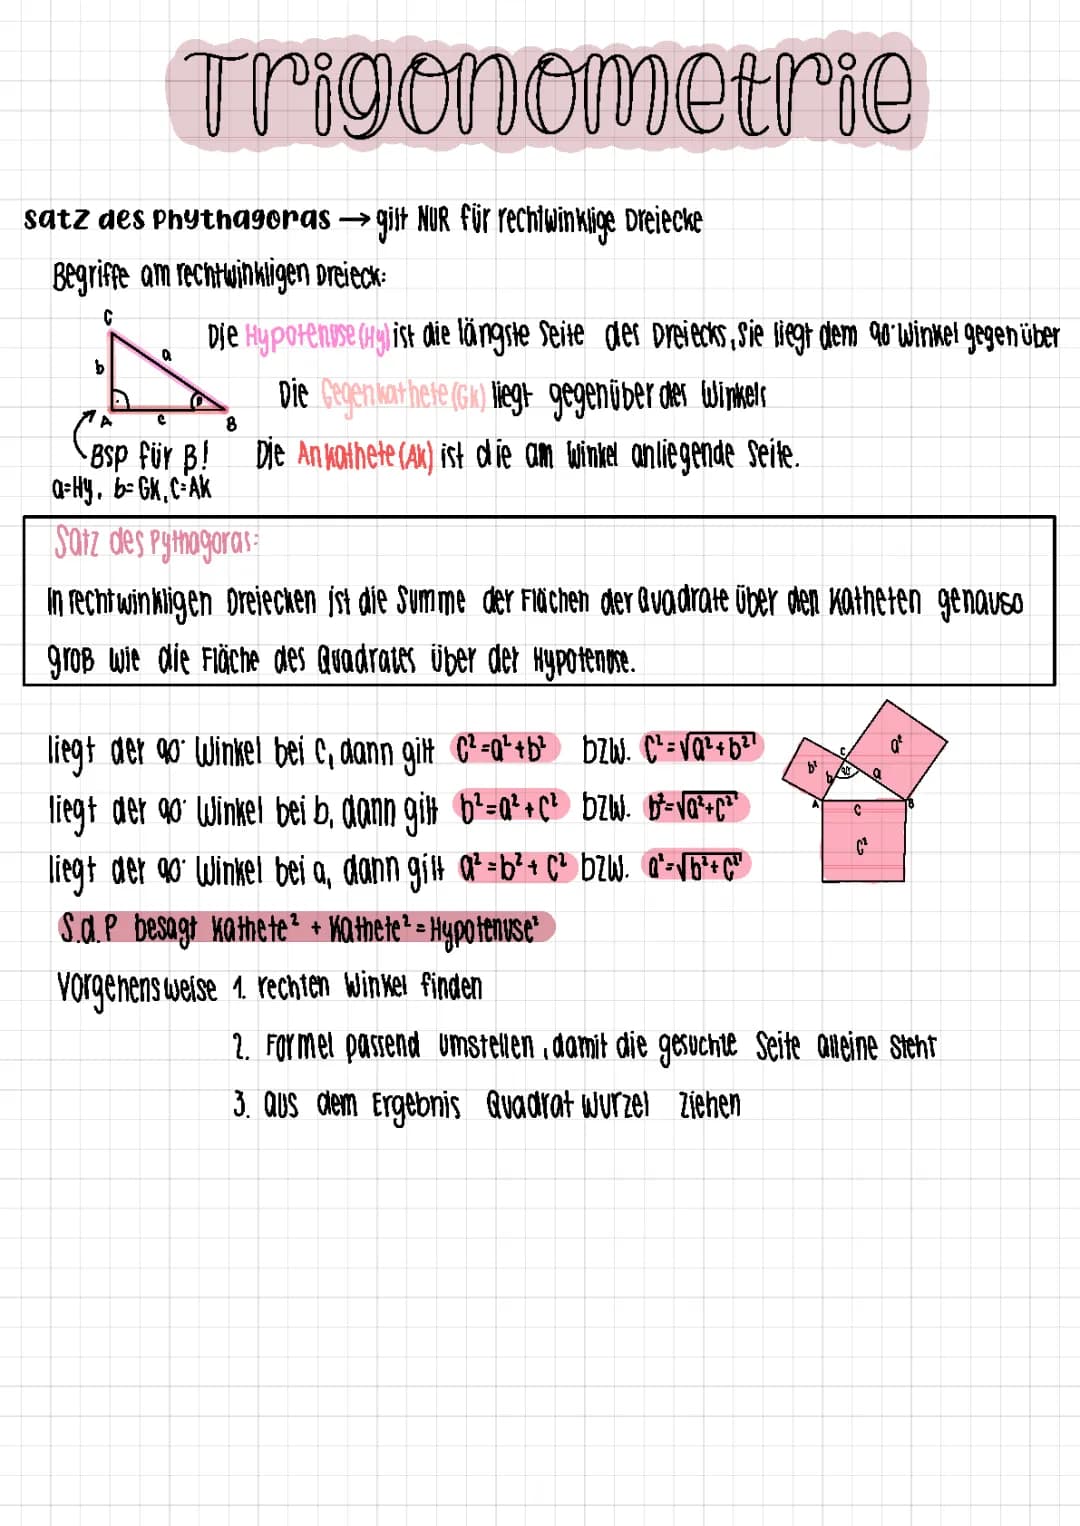 Trigonometrie
satz des Phythagoras → gilt NUR für rechtwinklige Dreiecke
Begriffe am rechtwinkligen Dreieck:
C
b
a
A
c
β
B
Die Hypotenuse (Hy) ist die längste Seite des Dreiecks, Sie liegt dem 90° Winkel gegenüber
Die Gegenkathete (Gk) liegt gegenüber des Winkels
Bsp für β!
Die Ankathete (Ak) ist die am Winkel anliegende Seite.
a=Hy, b=GK, C=AK
Satz des Pythagoras:
In rechtwinkligen Dreiecken ist die Summe der Flächen der Quadrate über den Katheten genauso
groß wie die Fläche des Quadrates über der Hypotenuse.
liegt der 90° Winkel bei C, dann gilt C²=a²+b² bzw. C²=√a²+b²
liegt der 90° Winkel bei b, dann gilt b²=a²+C² bzw. b²=√a²+C²
liegt der 90° Winkel bei a, dann gilt a²=b²+C² bzw. a²=√b²+C²
b²
a²
C
b
90°
a
A
B
c
C²
S.d.P besagt Kathete² + Kathete² = Hypotenuse²
Vorgehensweise 1. rechten Winkel finden
2. Formel passend umstellen, damit die gesuchte Seite alleine steht
3. aus dem Ergebnis Quadratwurzel ziehen